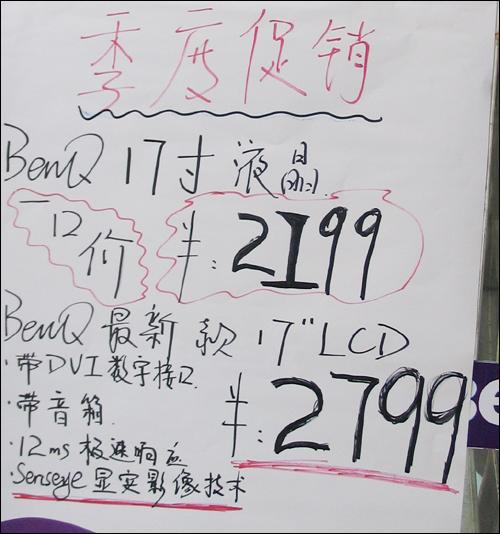 季度促销
BenQ 17寸液晶
一口价 ¥: 2199
BenQ 最新款 17"LCD
·带DVI数字接口
·带音箱
¥: 2799
·12ms极速响应
·Senseye显实影像技术